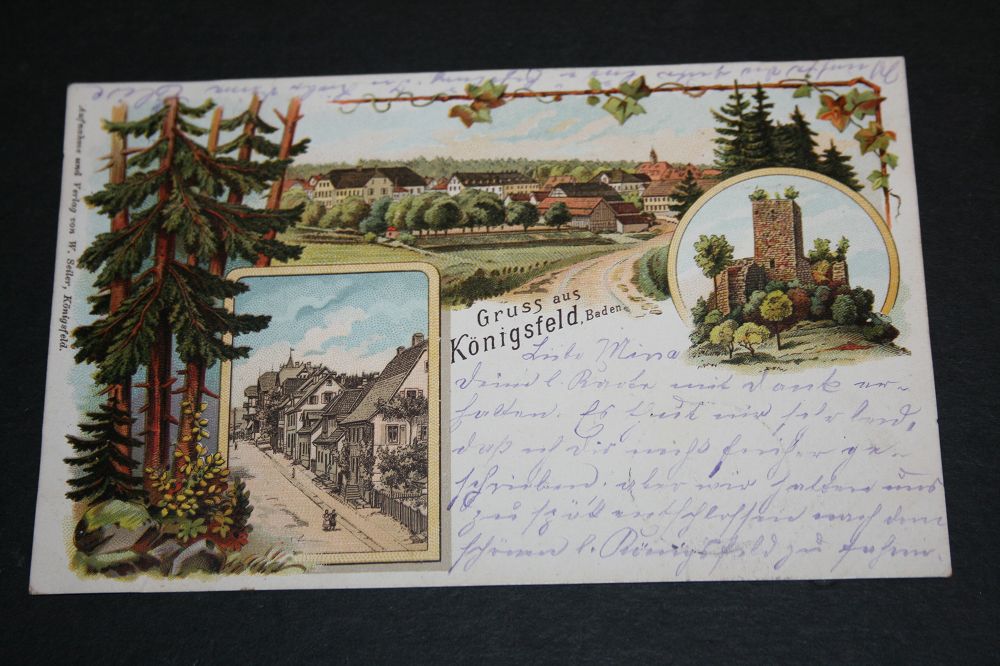 Aufnahme und Verlag von W. Seiler, Königsfeld.
Gruss aus
Königsfeld, Baden
Liebe Mina
Deine l. Karte mit Dank er-
halten. Es thut mir sehr leid,
daß ich Dir nicht früher ge-
schrieben. aber wir hatten uns
zu spät entschlossen nach dem
schönen l. Königsfeld zu gehn.